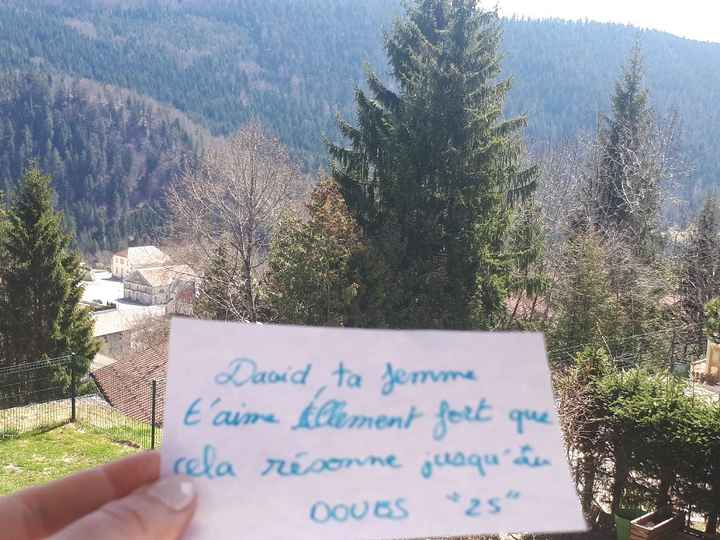 David, ta femme
t'aime tellement fort que
cela résonne jusqu'au
DOUBS "25"